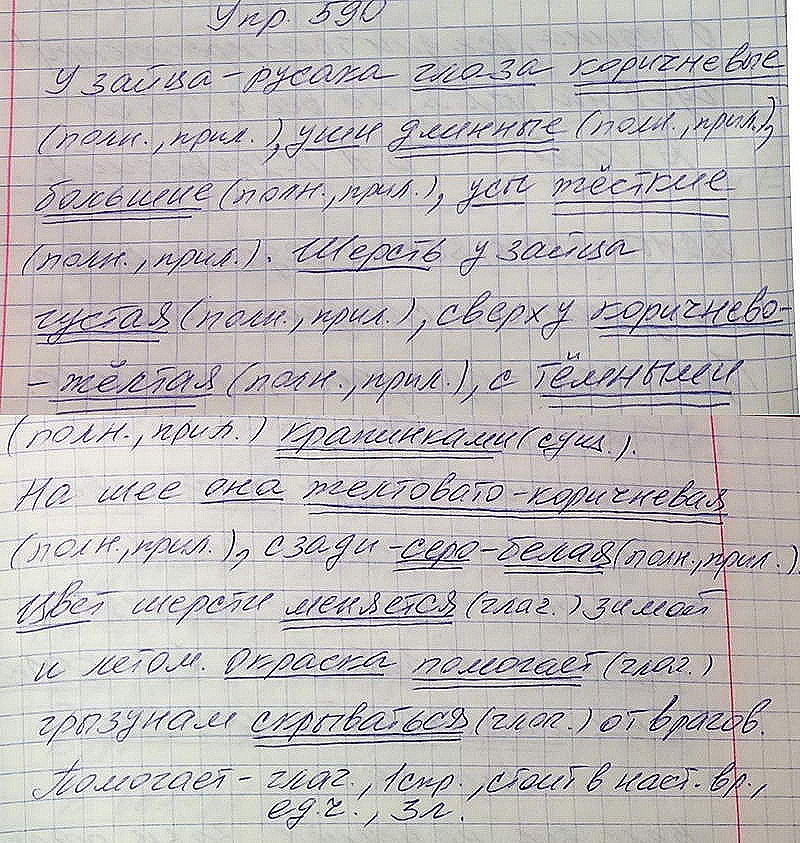 Упр. 590
У зайца-русака глаза коричневые
(полн., прил.), уши длинные (полн., прил.),
большие (полн., прил.), усы жёсткие
(полн., прил.). Шерсть у зайца
густая (полн., прил.), сверху коричнево-
-жёлтая (полн., прил.), с тёмными
(полн., прил.) крапинками (сущ.).
На шее она желтовато-коричневая
(полн., прил.), сзади - серо-белая (полн., прил.)
Цвет шерсти меняется (глаг.) зимой
и летом. Окраска помогает (глаг.)
грызунам скрываться (глаг.) от врагов.
Помогает - глаг., 1 спр., стоит в наст. вр.,
ед.ч., 3 л.